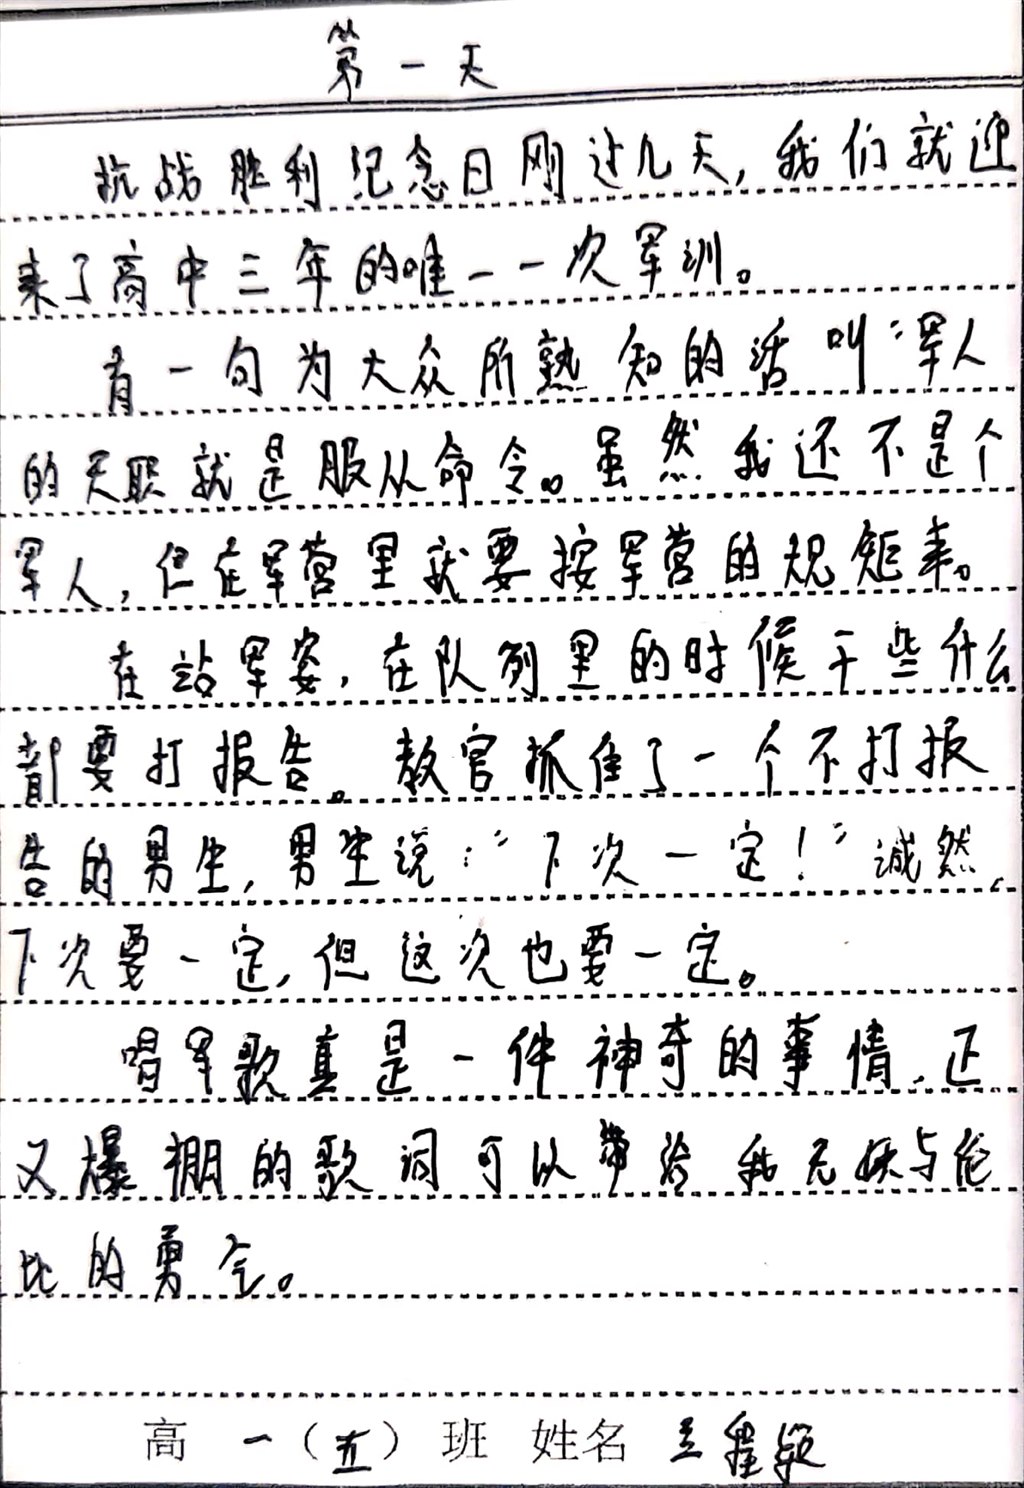 第一天
抗战胜利纪念日刚过几天,我们就迎
来了高中三年的唯一一次军训。
有一句为大众所熟知的话叫“军人
的天职就是服从命令。虽然我还不是个
军人,但在军营里就要按军营的规矩来。
在站军姿,在队列里的时候干些什么
都要打报告。教官抓住了一个不打报
告的男生,男生说:“下次一定!”诚然,
下次要一定,但这次也要一定。
唱军歌真是一件神奇的事情,正
又爆棚的歌词可以带给我无与伦
比的勇气。
高一(五)班 姓名